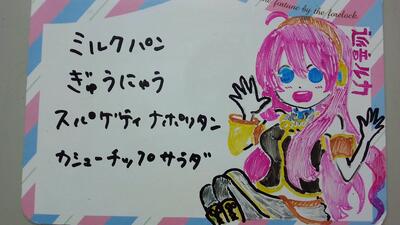 fortune by the forelock.
ミルクパン
ぎゅうにゅう
スパゲティナポリタン
カシューチップサラダ
巡音ルカ